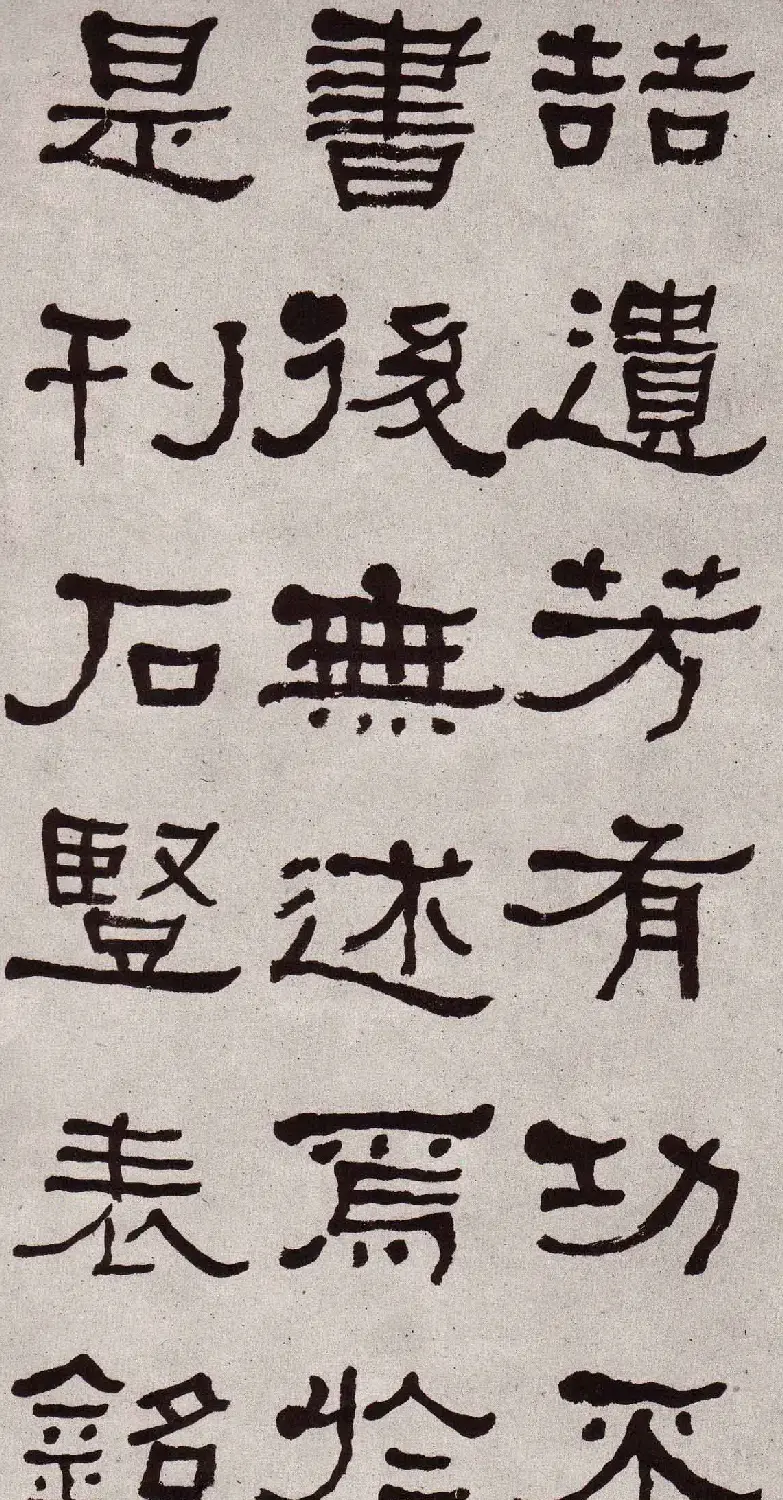 喆遺芳有功不
書後無述焉於
是刊石豎表銘